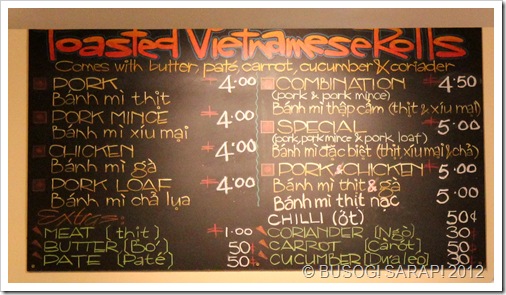 Toasted Vietnamese Rolls
Comes with butter, paté, carrot, cucumber & coriader
PORK 4.00
Bánh mì thịt
PORK MINCE 4.00
Bánh mì xíu mại
CHICKEN 4.00
Bánh mì gà
PORK LOAF 4.00
Bánh mì chả lụa
Extras:
MEAT (thịt) 1.00
BUTTER (Bơ) 50¢
PATE (Paté) 50¢
COMBINATION 4.50
(pork & pork mince)
Bánh mì thập cẩm (thịt & xíu mại)
SPECIAL 5.00
(pork, pork mince & pork loaf)
Bánh mì đặc biệt (thịt, xíu mại & chả)
PORK & CHICKEN 5.00
Bánh mì thịt & gà
Bánh mì thịt nạc 5.00
CHILLI (ớt) 50¢
CORIANDER (Ngò) 30¢
CARROT (Cà rốt) 50¢
CUCUMBER (Dưa leo) 30¢
© BUSOG! SARAP! 2012